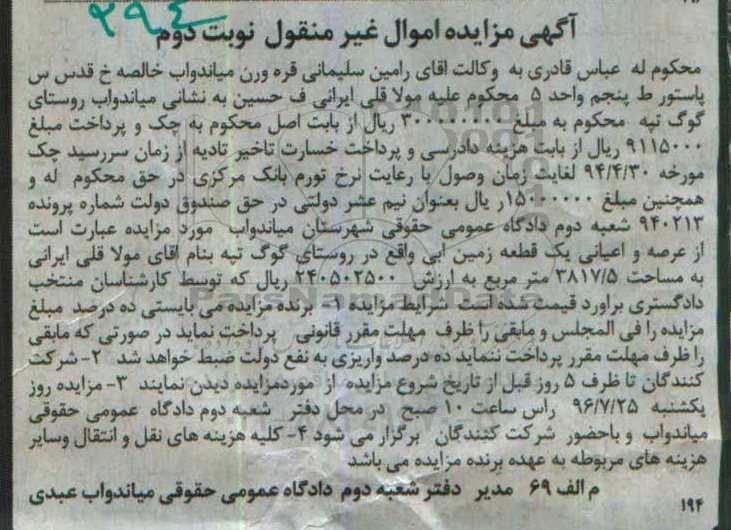 ۲۹٤
آگهی مزایده اموال غیر منقول نوبت دوم
محکوم له عباس قادری به وکالت اقای رامین سلیمانی قره ورن میاندواب خالصه خ قدس س
پاستور ط پنجم واحد ۵ محکوم علیه مولا قلی ایرانی ف حسین به نشانی میاندواب روستای
گوگ تپه محکوم به مبلغ ۳۰۰۰۰۰۰۰۰ ریال از بابت اصل محکوم به چک و پرداخت مبلغ
۹۱۱۵۰۰۰ ریال از بابت هزینه دادرسی و پرداخت خسارت تاخیر تادیه از زمان سررسید چک
مورخه ۹۴/۴/۳۰ لغایت زمان وصول با رعایت نرخ تورم بانک مرکزی در حق محکوم له و
همچنین مبلغ ۱۵۰۰۰۰۰۰ر یال بعنوان نیم عشر دولتی در حق صندوق دولت شماره پرونده
۹۴۰۲۱۳ شعبه دوم دادگاه عمومی حقوقی شهرستان میاندواب مورد مزایده عبارت است
از عرصه و اعیانی یک قطعه زمین ابی واقع در روستای گوگ تپه بنام اقای مولا قلی ایرانی
به مساحت ۳۸۱۷/۵ متر مربع به ارزش ۲۴۰۵۰۲۵۰۰ ریال که توسط کارشناسان منتخب
دادگستری براورد قیمت شده است شرایط مزایده ۱- برنده مزایده می بایستی ده درصد مبلغ
مزایده را فی المجلس و مابقی را ظرف مهلت مقرر قانونی پرداخت نماید در صورتی که مابقی
را ظرف مهلت مقرر پرداخت ننماید ده درصد واریزی به نفع دولت ضبط خواهد شد ۲- شرکت
کنندگان تا ظرف ۵ روز قبل از تاریخ شروع مزایده از موردمزایده دیدن نمایند ۳- مزایده روز
یکشنبه ۹۶/۷/۲۵ راس ساعت ۱۰ صبح در محل دفتر شعبه دوم دادگاه عمومی حقوقی
میاندواب و باحضور شرکت کنندگان برگزار می شود ۴- کلیه هزینه های نقل و انتقال وسایر
هزینه های مربوطه به عهده برنده مزایده می باشد
م الف ۶۹ مدیر دفتر شعبه دوم دادگاه عمومی حقوقی میاندواب عبدی
۱۹۴
ParsNamadData